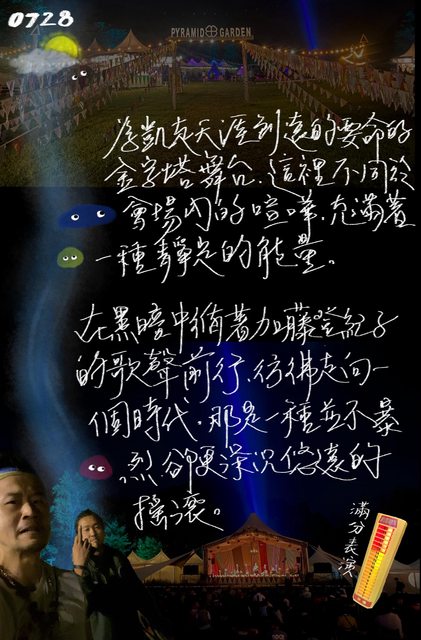 0728
PYRAMID GARDEN
凱哀天涯到遠的要命的
金字塔舞台，這裡不同於
會場內的喧嘩，充滿著
一種靜定的能量。
在黑暗中循著加藤登紀子
的歌聲前行，彷彿走向一
個時代，那是一種並不暴
烈卻更深沉悠遠的
搖滾。
滿分表演